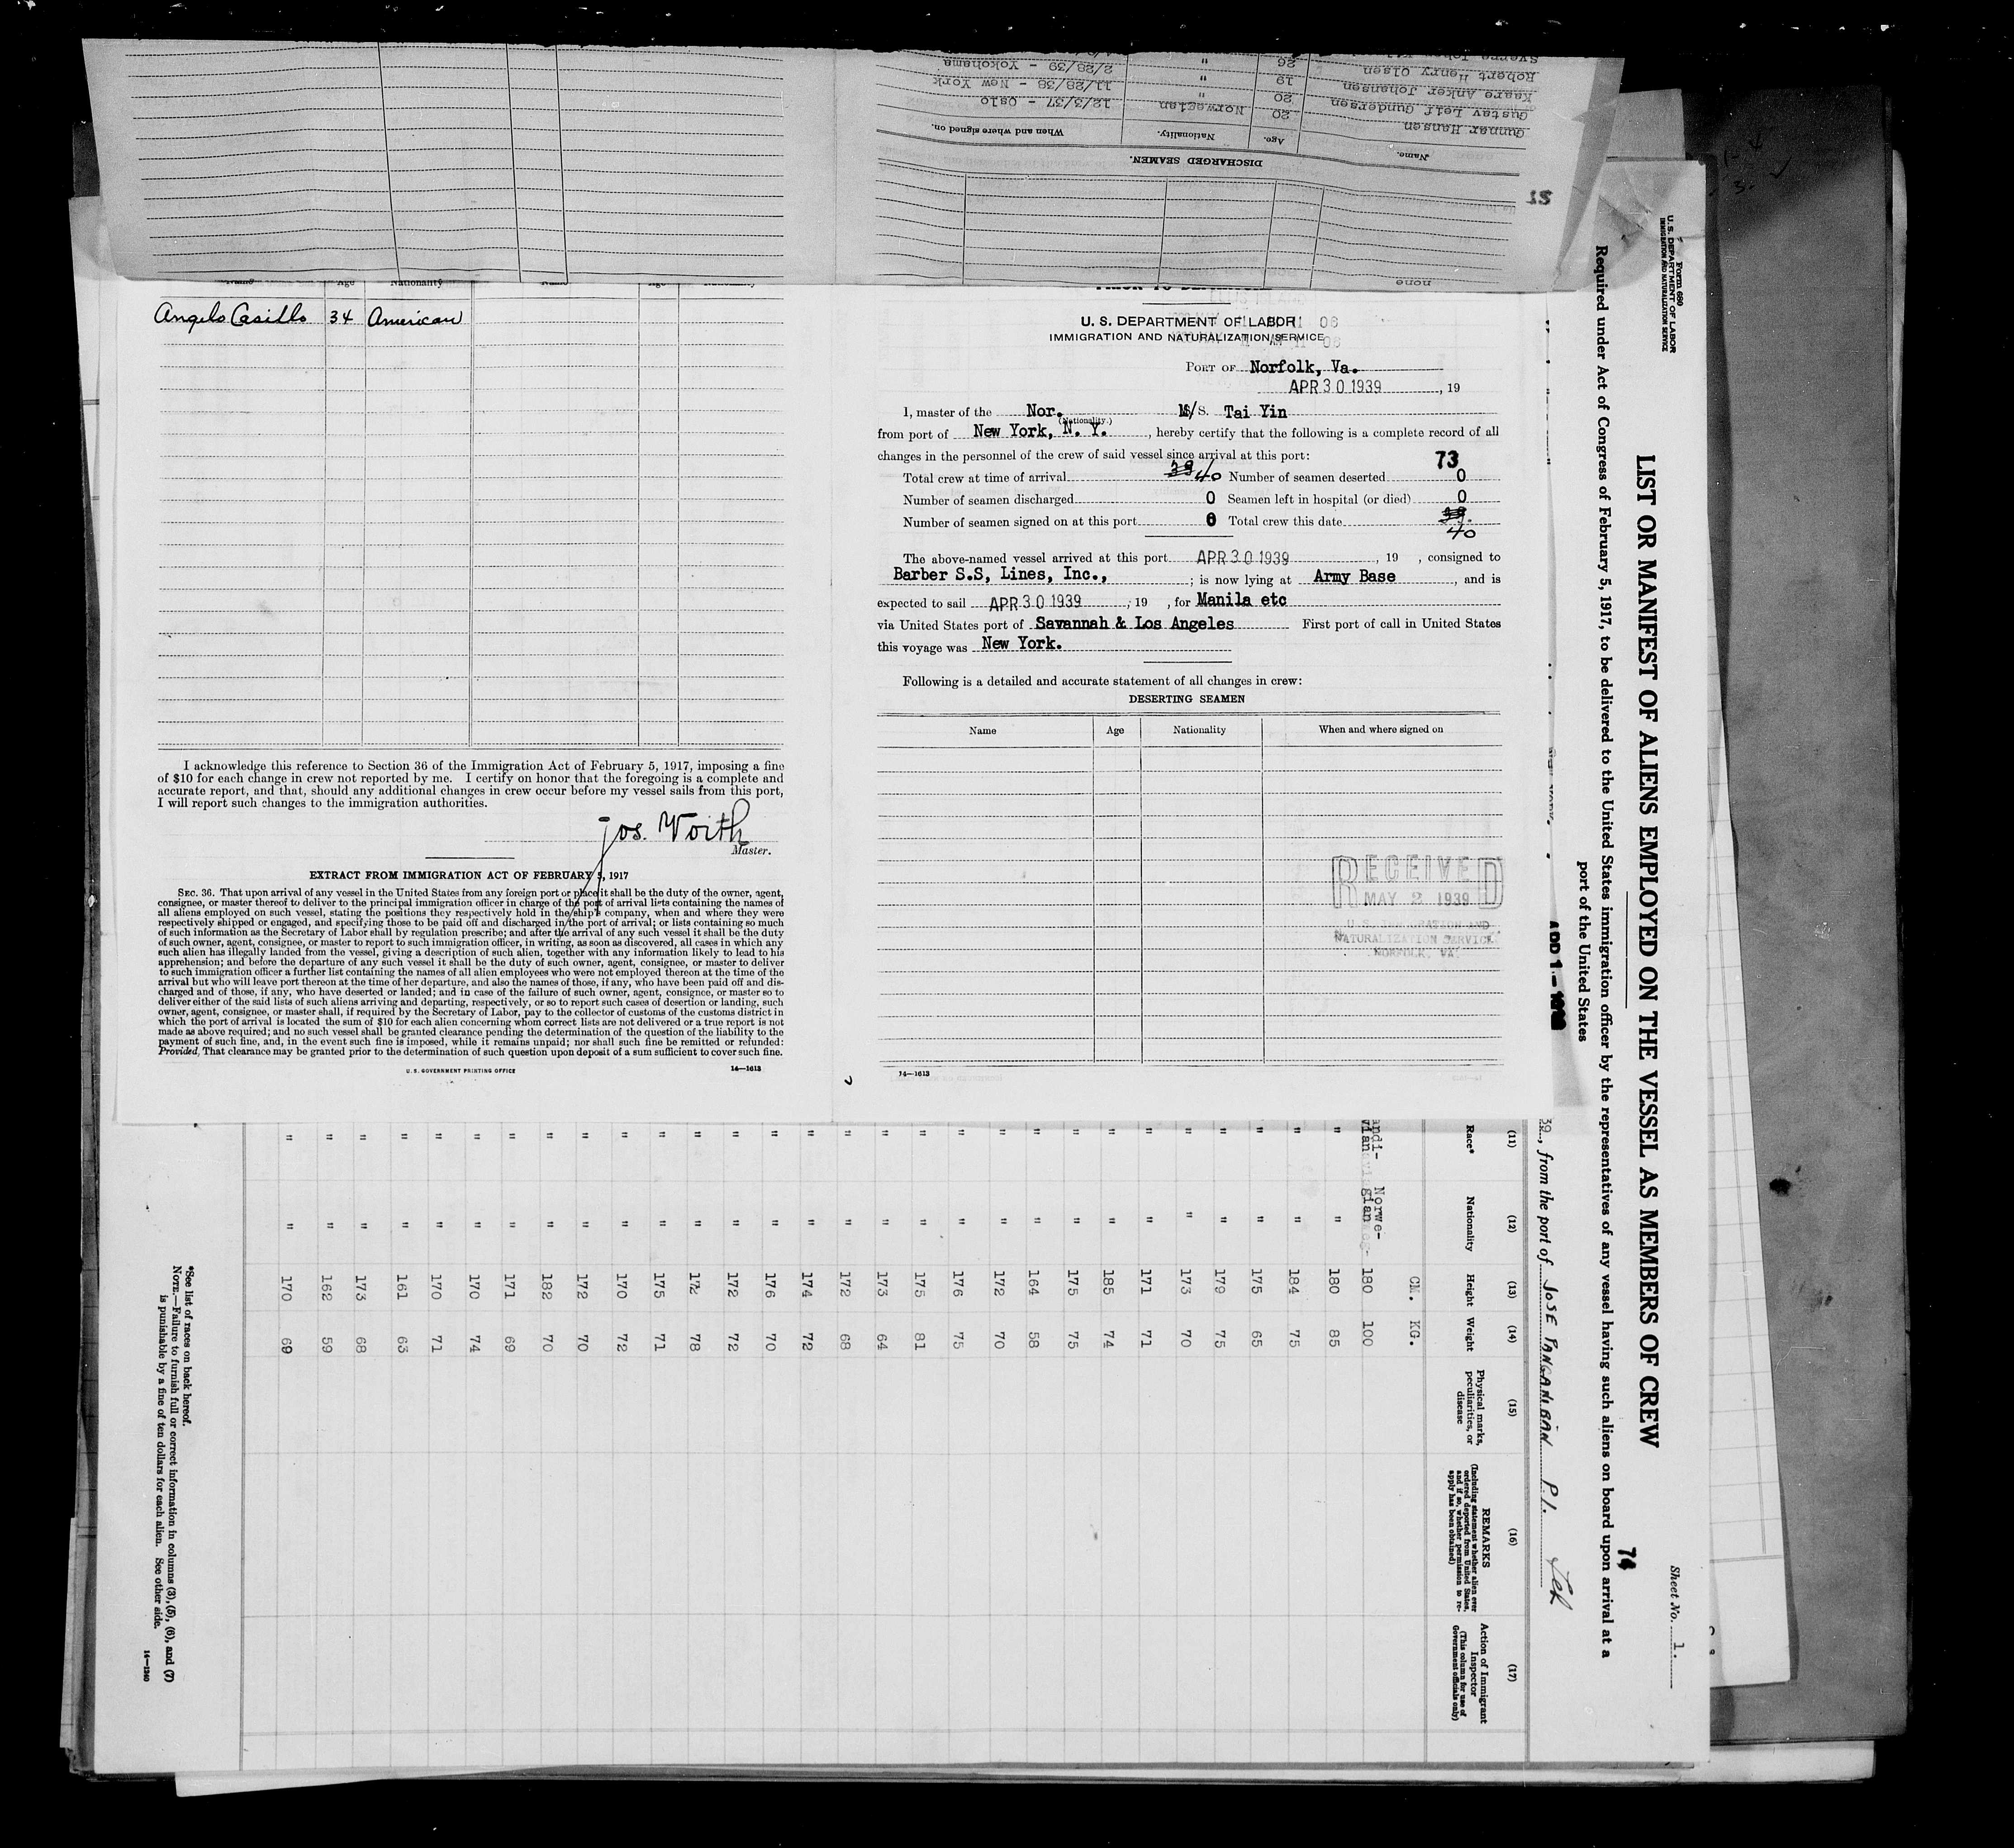 Gunnar Hansen
Gustav Leif Gundersen 20 Norwegian 12/3/37 - Oslo
Kaare Anker Johansen 20 " 11/28/38 - New York
Robert Henry Olsen 19 " 2/28/39 - Yokohama
26 "
DISCHARGED SEAMEN.
Name. Age. Nationality. When and where signed on.
none
Name Age Nationality
Angelo Casillo 34 American
I acknowledge this reference to Section 36 of the Immigration Act of February 5, 1917, imposing a fine
of $10 for each change in crew not reported by me. I certify on honor that the foregoing is a complete and
accurate report, and that, should any additional changes in crew occur before my vessel sails from this port,
I will report such changes to the immigration authorities.
Jos. Woith
Master.
EXTRACT FROM IMMIGRATION ACT OF FEBRUARY 5, 1917
SEC. 36. That upon arrival of any vessel in the United States from any foreign port or place it shall be the duty of the owner, agent,
consignee, or master thereof to deliver to the principal immigration officer in charge of the port of arrival lists containing the names of
all aliens employed on such vessel, stating the positions they respectively hold in the ship's company, when and where they were
respectively shipped or engaged, and specifying those to be paid off and discharged in the port of arrival; or lists containing so much
of such information as the Secretary of Labor shall by regulation prescribe; and after the arrival of any such vessel it shall be the duty
of such owner, agent, consignee, or master to report to such immigration officer, in writing, as soon as discovered, all cases in which any
such alien has illegally landed from the vessel, giving a description of such alien, together with any information likely to lead to his
apprehension; and before the departure of any such vessel it shall be the duty of such owner, agent, consignee, or master to deliver
to such immigration officer a further list containing the names of all alien employees who were not employed thereon at the time of the
arrival but who will leave port thereon at the time of her departure, and also the names of those, if any, who have been paid off and dis-
charged and of those, if any, who have deserted or landed; and in case of the failure of such owner, agent, consignee, or master so to
deliver either of the said lists of such aliens arriving and departing, respectively, or so to report such cases of desertion or landing, such
owner, agent, consignee, or master shall, if required by the Secretary of Labor, pay to the collector of customs of the customs district in
which the port of arrival is located the sum of $10 for each alien concerning whom correct lists are not delivered or a true report is not
made as above required; and no such vessel shall be granted clearance pending the determination of the question of the liability to the
payment of such fine, and, in the event such fine is imposed, while it remains unpaid; nor shall such fine be remitted or refunded:
Provided, That clearance may be granted prior to the determination of such question upon deposit of a sum sufficient to cover such fine.
U. S. GOVERNMENT PRINTING OFFICE 14—1613
U. S. DEPARTMENT OF LABOR
IMMIGRATION AND NATURALIZATION SERVICE
PORT OF Norfolk, Va.
APR 30 1939, 19
I, master of the Nor. M/S. Tai Yin
(Nationality.)
from port of New York, N. Y., hereby certify that the following is a complete record of all
changes in the personnel of the crew of said vessel since arrival at this port:
73
Total crew at time of arrival 39 40 Number of seamen deserted 0
Number of seamen discharged 0 Seamen left in hospital (or died) 0
Number of seamen signed on at this port 0 Total crew this date 39. 40
The above-named vessel arrived at this port APR 30 1939, 19 , consigned to
Barber S.S, Lines, Inc., ; is now lying at Army Base, and is
expected to sail APR 30 1939, 19 , for Manila etc
via United States port of Savannah & Los Angeles First port of call in United States
this voyage was New York.
Following is a detailed and accurate statement of all changes in crew:
DESERTING SEAMEN
Name Age Nationality When and where signed on
RECEIVED
MAY 2 1939
U. S. IMMIGRATION AND
NATURALIZATION SERVICE
NORFOLK, VA.
14—1613
Form 680
U. S. DEPARTMENT OF LABOR
IMMIGRATION AND NATURALIZATION SERVICE
Sheet No. 1.
LIST OR MANIFEST OF ALIENS EMPLOYED ON THE VESSEL AS MEMBERS OF CREW
74
Required under Act of Congress of February 5, 1917, to be delivered to the United States immigration officer by the representatives of any vessel having such aliens on board upon arrival at a
port of the United States
39, from the port of JOSE PANGANIBAN P.I.
(11) (12) (13) (14) (15) (16) (17)
Race* Nationality Height Weight Physical marks, peculiarities, or disease REMARKS (Including statement whether alien ever ordered deported from United States, and if so, whether permission to re-apply has been obtained) Action of Immigrant Inspector (This column for use of Government officials only)
CM. KG.
andi-vian Norwe-gian 180 100
" " 180 85
" " 184 75
" " 175 65
" " 179 75
" " 173 70
" " 171 71
" " 185 74
" " 175 75
" " 164 58
" " 172 70
" " 176 75
" " 175 81
" " 173 64
" " 172 68
" " 174 72
" " 176 70
" " 172 72
" " 172 78
" " 175 71
" " 170 72
" " 172 70
" " 182 70
" " 171 69
" " 170 74
" " 170 71
" " 161 63
" " 173 68
" " 162 59
" " 170 69
*See list of races on back hereof.
NOTE.—Failure to furnish full or correct information in columns (3), (5), (6), and (7)
is punishable by a fine of ten dollars for each alien. See other side.
14—1240